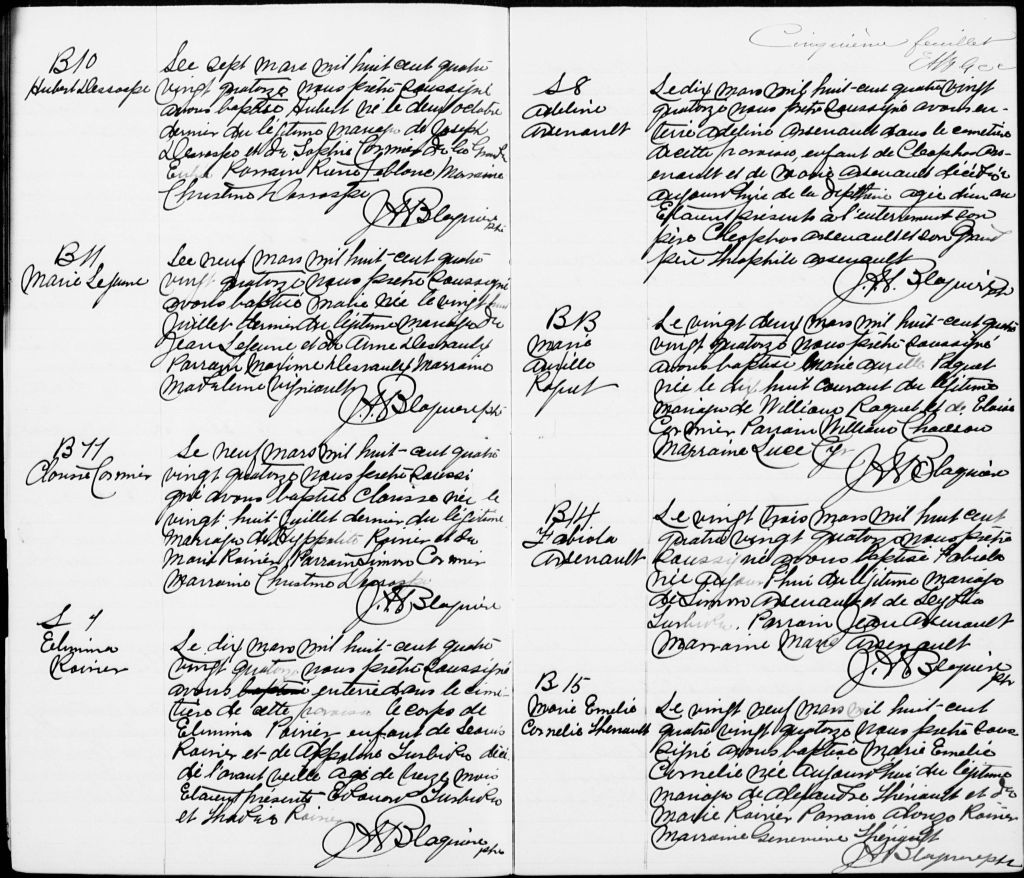 B10
Hubert Desraspe
Lee sept mars mil huit cent quatre
vingt quatorze nous prêtre soussigné
avons baptisé Hubert né le deux octobre
dernier du légitime mariage de Joseph
Desraspe et de Sophie Cormier de la
Parrain Pierre Leblanc Marraine
Christine Desraspe
J.A. Blaquière ptre
B11
Marie Lejeune
Lee neuf mars mil huit-cent quatre
vingt quatorze nous prêtre soussigné
avons baptisé Marie née le vingt
Juillet dernier du légitime mariage de
Jean Lejeune et de Anne Desraults
Parrain Maxime Desraults Marraine
Madeleine Vigneault
J.A. Blaquière ptre
B11
Clarisse Cormier
Le neuf mars mil huit-cent quatre
vingt quatorze nous prêtre soussi
gné avons baptisé Clarisse née le
vingt-huit Juillet dernier du légitime
Mariage de Hyppolite Poirier et de
Marie Poirier, Parrain Simon Cormier
Marraine Christine Desraspe
J.A. Blaquière
S 7
Elimina
Poirier
Le dix mars mil huit-cent quatre
vingt quatorze nous prêtre soussigné
avons baptisé enterré dans le cime
tière de cette paroisse le corps de
Elimina Poirier enfant de Louis
Poirier et de Appoline Turbide décé
dé l'avant veille agé de treize mois
Etaient présents Edouard Turbide
et Thadée Poirier
J.A. Blaquière ptre
Cinquième feuillet
S8
Adeline
Arsenault
Le dix mars mil huit-cent quatre vingt
quatorze nous prêtre soussigné avons en-
terré Adeline Arsenault dans le cimetière
de cette paroisse, enfant de Cleophas Ars-
enault et de Marie Arsenault décédée
aujourd'hui de la diphtérie agée d'un an
Etaient présents à l'enterrement son
père Cleophas Arsenault et son Grand
père Théophile Arsenault
J.A. Blaquière ptre
B13
Marie
Aurille
Paquet
Le vingt deux mars mil huit-cent quatre
vingt quatorze nous prêtre soussigné
avons baptisé Marie Aurille Paquet
née le dix huit courant du légitime
mariage de William Paquet et de Eloise
Cormier Parrain William Chaisson
Marraine Luce Cyr
J.A. Blaquière
B14
Fabiola
Arsenault
Le vingt trois mars mil huit cent
quatre vingt quatorze nous prêtre
soussigné avons baptisé Fabiola
née aujourd'hui du légitime mariage
de Simon Arsenault et de Scythia
Turbide. Parrain Jean Arsenault
Marraine Marie Arsenault
J.A. Blaquière ptre
B15
Marie Emelie
Cornelie Thériault
Le vingt neuf mars mil huit-cent
quatre vingt quatorze nous prêtre sous
signé avons baptisé Marie Emelie
Cornelie née aujourd'hui du légitime
mariage de Alexandre Thériault et de
Marie Poirier Parrain Alonzo Poirier
Marraine Genevieve Thériault
J.A. Blaquière ptre